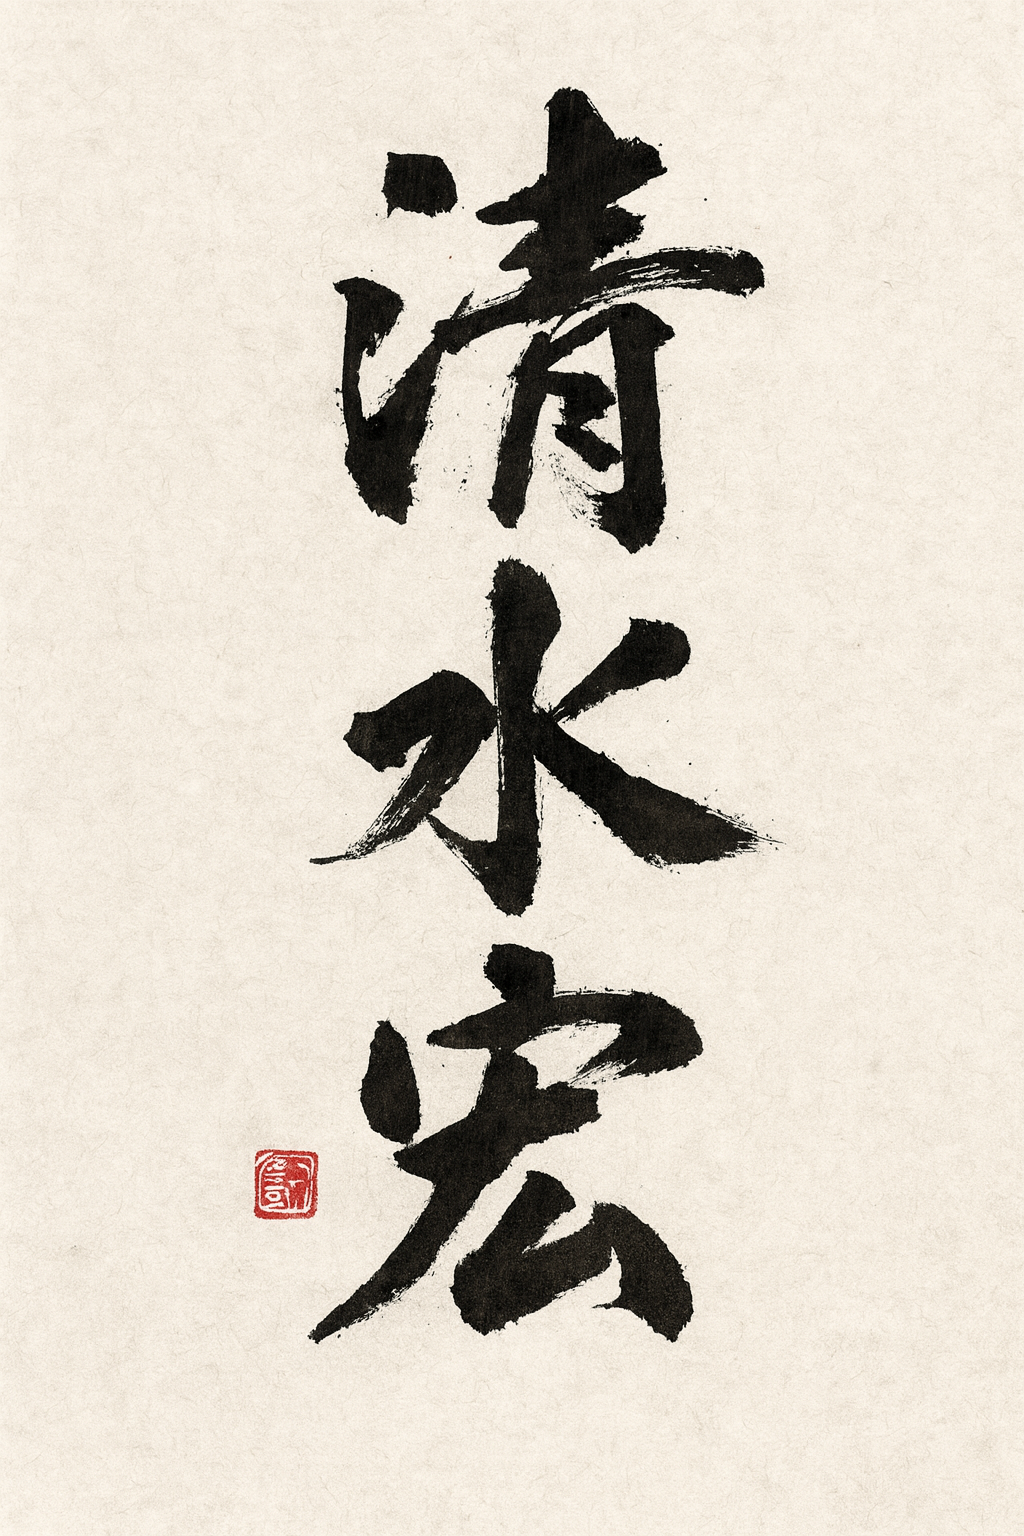 清水宏